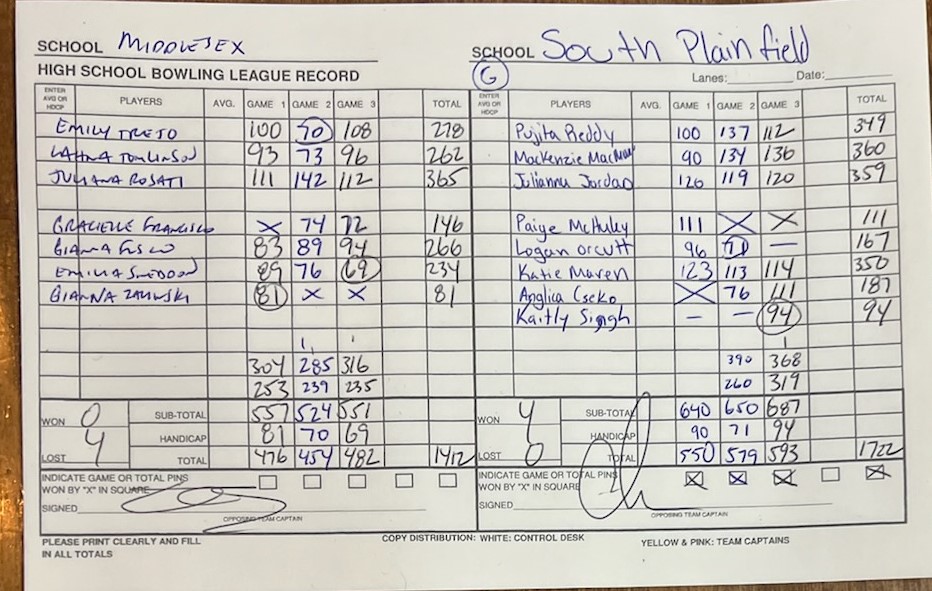 SCHOOL MIDDLESEX SCHOOL South Plainfield
HIGH SCHOOL BOWLING LEAGUE RECORD G Lanes: Date:
ENTER AVG OR HDCP PLAYERS AVG. GAME 1 GAME 2 GAME 3 TOTAL ENTER AVG OR HDCP PLAYERS AVG. GAME 1 GAME 2 GAME 3 TOTAL
EMILY TRETO 100 70 108 278 Pujita Reddy 100 137 112 349
TOMLINSON 93 73 96 262 Mackenzie 90 134 136 360
JULIANA ROSATI 111 142 112 365 Julianna Jordao 120 119 120 359
GRACIELLE FRANCISCO X 74 72 146 Paige McHuly 111 X X 111
GIANA FUSCO 83 89 94 266 Logan Orcutt 96 71 — 167
EMILIA SNEDDON 89 76 69 234 Katie Maren 123 113 114 350
GIANNA 81 X X 81 Anglica Cseko X 76 111 187
Kaitly Singh — — 94 94
304 285 316 390 368
253 239 235 260 319
WON 0 SUB-TOTAL 557 524 551 WON 4 SUB-TOTAL 640 650 687
HANDICAP 81 70 69 HANDICAP 90 71 94
LOST 4 TOTAL 476 454 482 1412 LOST 0 TOTAL 550 579 593 1722
INDICATE GAME OR TOTAL PINS WON BY "X" IN SQUARE INDICATE GAME OR TOTAL PINS WON BY "X" IN SQUARE X X X X
SIGNED SIGNED
OPPOSING TEAM CAPTAIN OPPOSING TEAM CAPTAIN
PLEASE PRINT CLEARLY AND FILL IN ALL TOTALS COPY DISTRIBUTION: WHITE: CONTROL DESK YELLOW & PINK: TEAM CAPTAINS